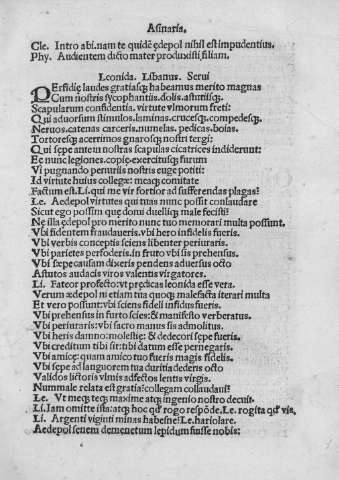 Asinaria.
Cle. Intro abi. nam te quidē ędepol nihil est impudentius.
Phy. Audientem dicto mater produxisti filiam.
Leonida. Libanus. Serui
PErfidię laudes gratiasq; habeamus merito magnas
Cum nostris sycophantiis. dolis. astutiisq;
Scapularum confidentia. virtute vlmorum freti:
Qui aduorsum stimulos. laminas. crucesq;. compedesq;.
Neruos. catenas carceris. numelas. pedicas. boias.
Tortoresq; acerrimos gnarosq; nostri tergi:
Qui sępe ante in nostras scapulas cicatrices indiderunt:
Ee nunc legiones. copię. exercitusq; furum
Vi pugnando periuriis nostris euge potiti:
Id virtute huius collegæ: meaq; comitate
Factum est. Li. qui me vir fortior ad sufferendas plagas?
Le. Aedepol virtutes qui tuas nunc possit conlaudare
Sicut ego possim quę domi duelliq; male fecisti?
Ne illa ędepol pro merito nunc tuo memorari multa possunt.
Vbi fidentem fraudaueris. vbi hero infidelis fueris.
Vbi verbis conceptis sciens libenter periuraris.
Vbi parietes perfoderis. in fruto vbi sis prehensus.
Vbi sępe causam dixeris pendens aduersus octo
Astutos audacis viros valentis virgatores.
Li. Fateor profecto: vt prędicas leonida esse vera.
Verum ędepol ne etiam tua quoq; malefacta iterari multa
Et vero possunt: vbi sciens fideli infidus fueris.
Vbi prehensus in furto scies: & manifesto verberatus.
Vbi periuraris: vbi sacro manus sis admolitus.
Vbi heris damno: molestię: & dedecori sępe fueris.
Vbi creditum tibi sit: tibi datum esse pernegaris.
Vbi amicę: quam amico tuo fueris magis fidelis.
Vbi sępe ad languorem tua duritia dederis octo
Validos lictoris vlmis adfectos lentis virgis.
Nummale relata est gratia? collegam collaudaui?
Le. Vt meq; teq; maxime atq; ingenio nostro decuit.
Li. Iam omitte ista: atq; hoc qđ rogo respōde. Le. rogita qđ vis.
Li. Argenti viginti minas habesne? Le. hariolare.
Aedepol senem demenetum lepidum fuisse nobis: